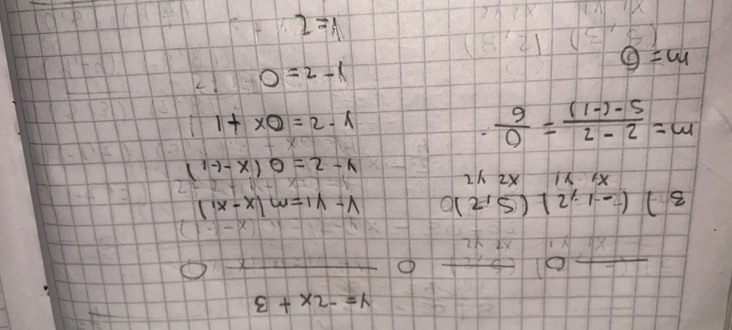 y = -2x + 3
3) (-1,2) (5,2)
x1 y1 x2 y2
m = 2 - 2 / 5 - (-1) = 0 / 6
m = 0
y - y1 = m(x - x1)
y - 2 = 0(x - (-1)
y - 2 = 0x + 1
y - 2 = 0
y = 2